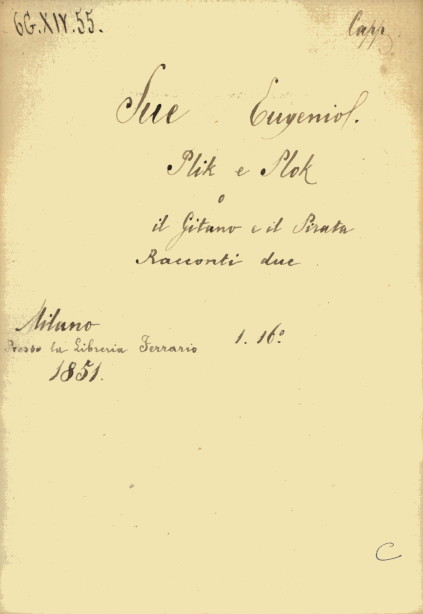 6G.XIV.55.
Capp
Sue Eugenio.
Plik e Plok
o
il Gitano e il Pirata
Racconti due
Milano
Presso la Libreria Ferrario
1. 16º
1851.
C